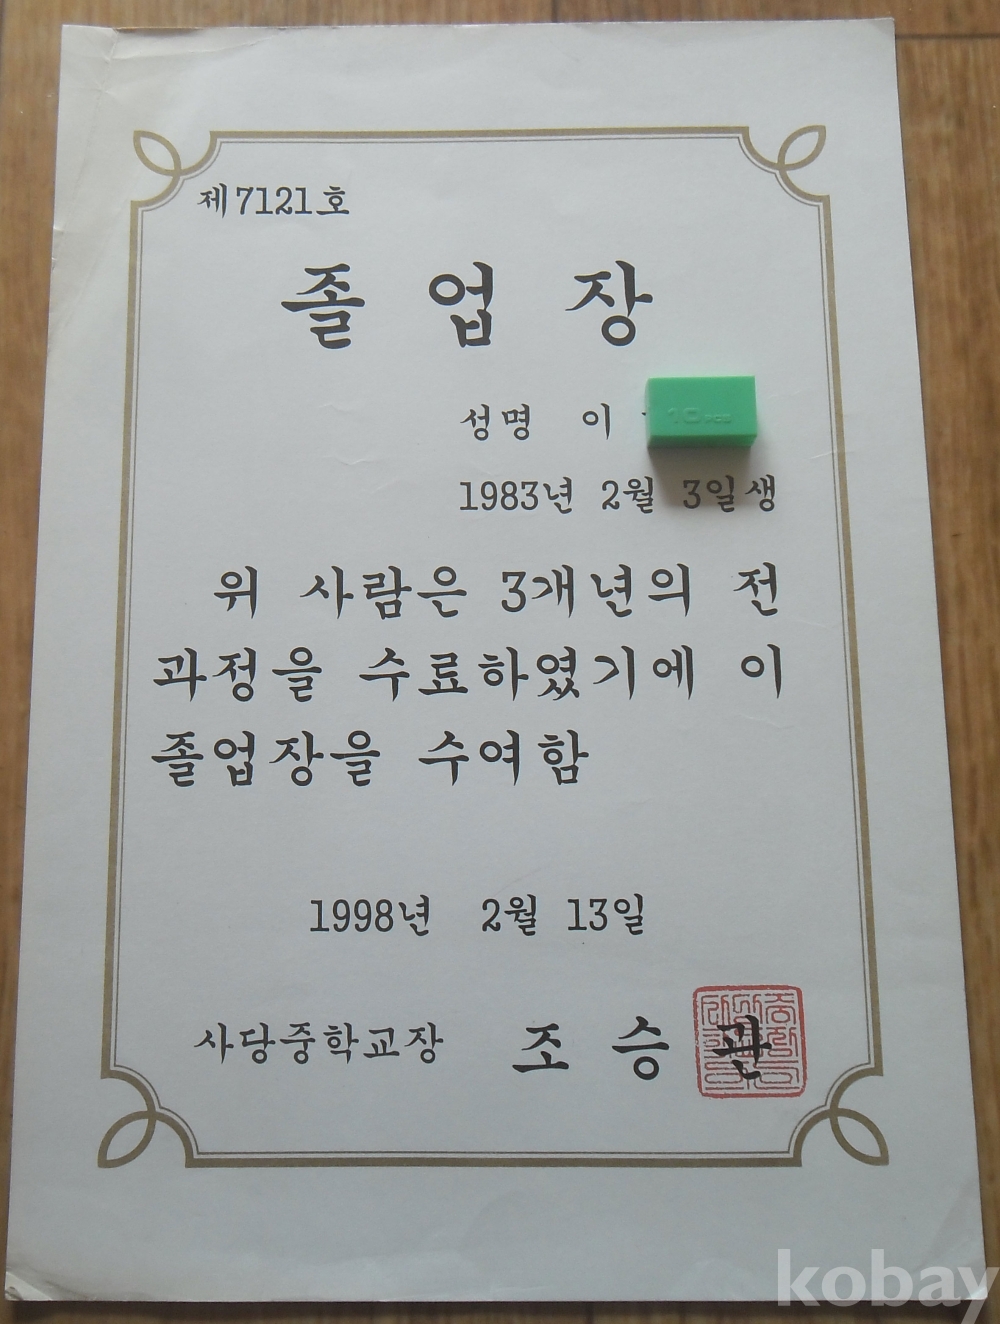 제7121호
졸 업 장
성명 이
1983년 2월 3일생
위 사람은 3개년의 전
과정을 수료하였기에 이
졸업장을 수여함
1998년 2월 13일
사당중학교장 조 승 관
kobay